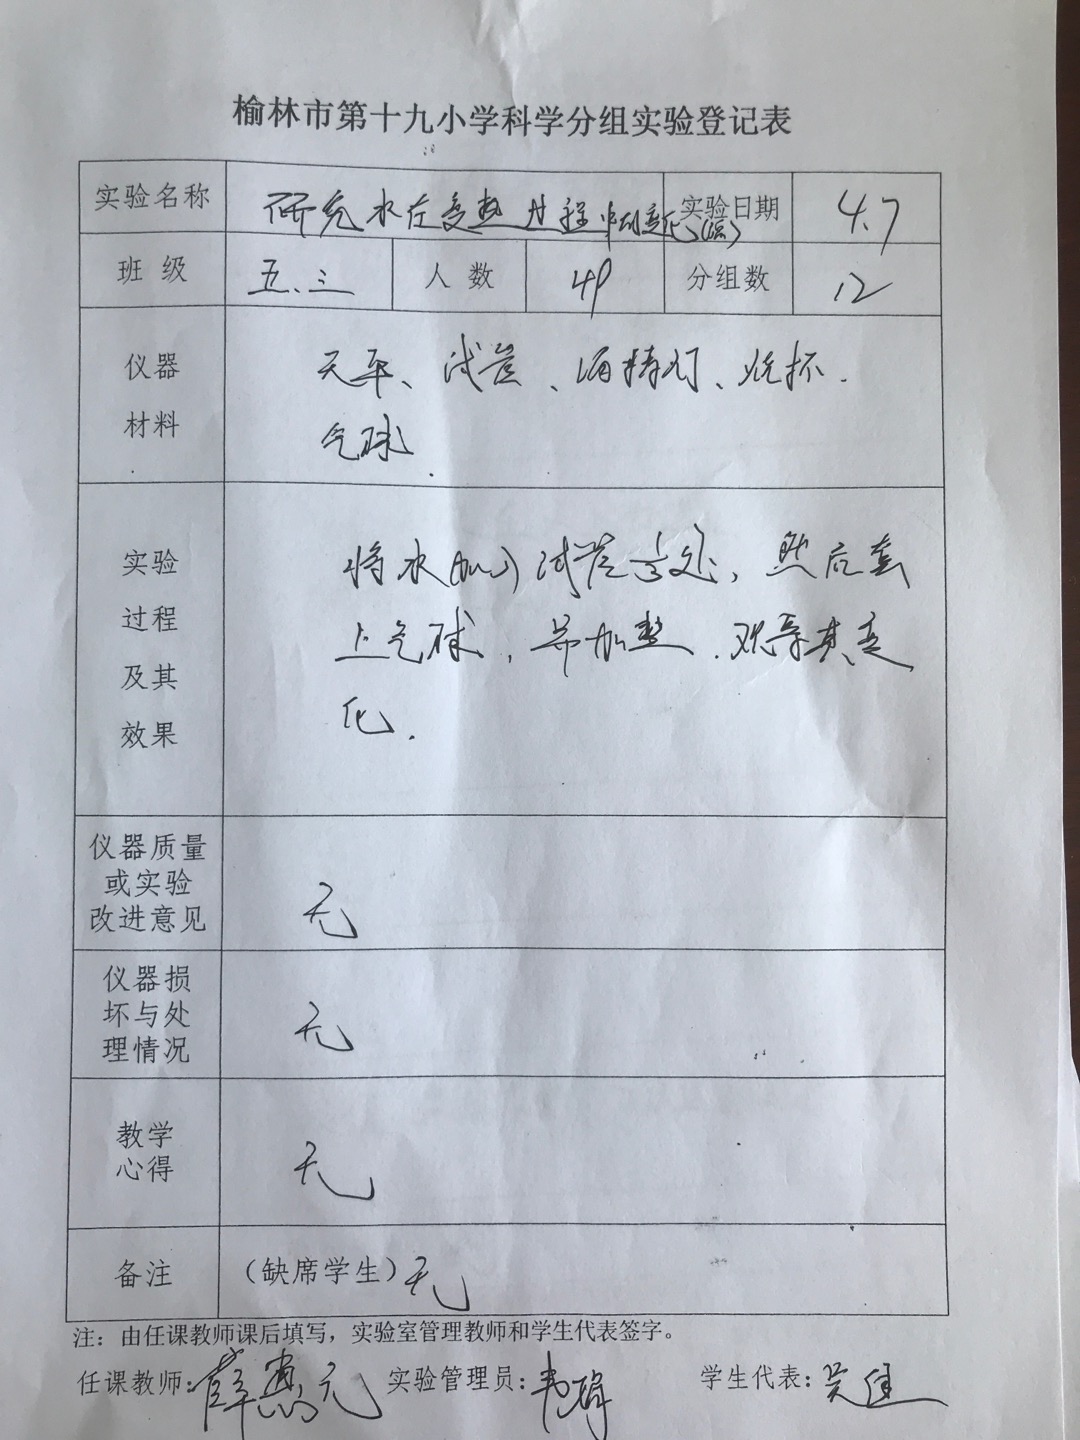 榆林市第十九小学科学分组实验登记表
实验名称 研究水在受热过程中的变化 实验日期 4.7
班 级 五、三 人 数 49 分组数 12
仪器 天平、试管、酒精灯、烧杯.
材料 气球.
实验 将水 试管 处, 然后套
过程 上气球, 并加热. 观察其变
及其 化.
效果
仪器质量
或实验 无
改进意见
仪器损
坏与处 无
理情况
教学 无
心得
备注 (缺席学生) 无
注: 由任课教师课后填写, 实验室管理教师和学生代表签字。
任课教师: 薛 元 实验管理员: 韦 学生代表: 吴佳